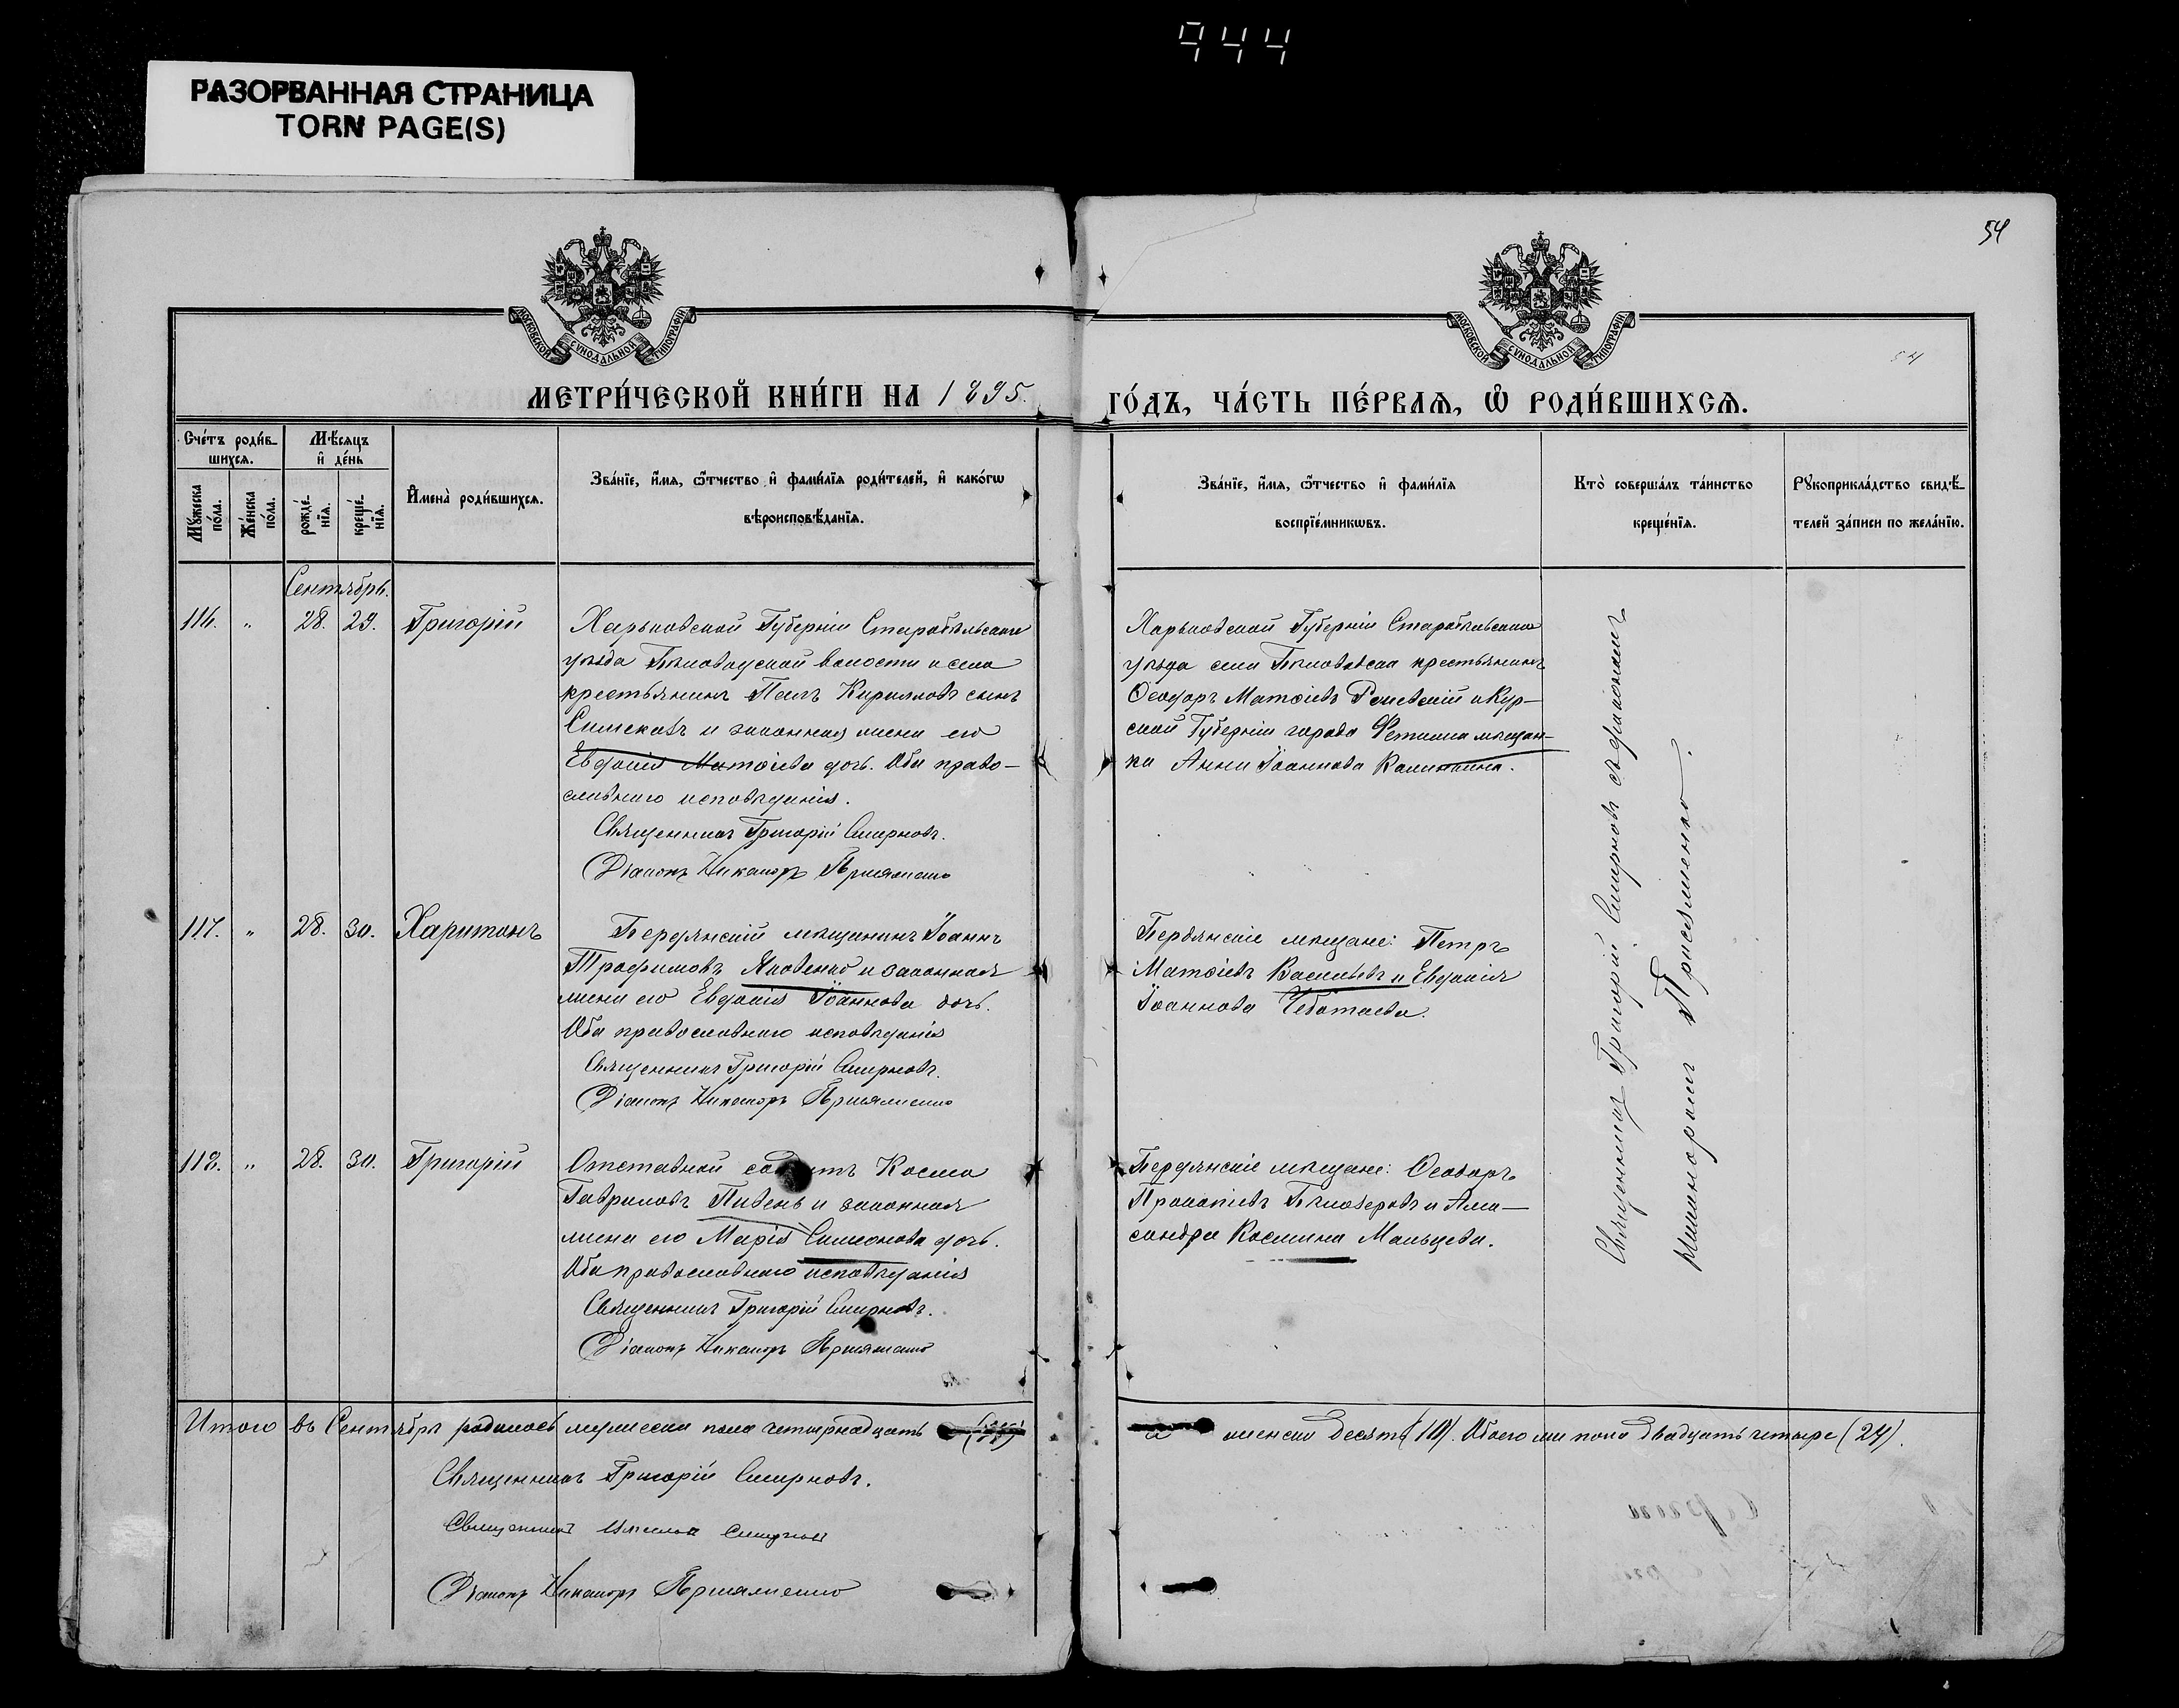 944
РАЗОРВАННАЯ СТРАНИЦА
TORN PAGE(S)
54
МОСКОВСКОЙ СѴНОДАЛЬНОЙ ТИПОГРАФІИ
МОСКОВСКОЙ СѴНОДАЛЬНОЙ ТИПОГРАФІИ
54
МЕТРИ́ЧЕСКОЙ КНИ́ГИ НА 1895.
ГО́ДЪ, ЧА́СТЬ ПЕ́РВАѦ, Ѽ РОДИ́ВШИХСѦ.
Сче́тъ роди́в-
шихсѧ.
Мꙋ́жеска по́ла.
Же́нска по́ла.
Мѣ́сѧцъ
и҆ де́нь
рожде́-нїѧ.
креще́-нїѧ.
И҆мена̀ роди́вшихсѧ.
Зва́нїе, и҆́мѧ, ѻ҆́тчество и҆ фами́лїѧ роди́телей, и҆ како́гѡ
вѣроисповѣ́данїѧ.
Зва́нїе, и҆́мѧ, ѻ҆́тчество и҆ фами́лїѧ
воспрїе́мникѡвъ.
Кто̀ соверша́лъ та́инство
креще́нїѧ.
Рꙋкоприкла́дство свидѣ́-
телей за́писи по жела́нїю.
Сентябрь.
116. " 28. 29. Григорій
Харьковской Губерніи Старобѣльскаго
уѣзда Бѣловодской волости и села
крестьянинъ Павелъ Кирилловъ сынъ
и законная жена его
Евдокія Матѳіева дочь. Оба право-
славнаго исповѣданія.
Священникъ Григорій Смирновъ.
Діаконъ Никаноръ
Харьковской Губерніи Старобѣльскаго
уѣзда села крестьянинъ
Ѳеодоръ Матѳіевъ и Кур-
ской Губерніи города мѣщан-
ка Анна Іоаннова Калинкина.
117. " 28. 30. Харитонъ
Бердянскій мѣщанинъ Іоаннъ
Трофимовъ Яковенко и законная
жена его Евдокія Іоаннова дочь.
Оба православнаго исповѣданія
Священникъ Григорій Смирновъ.
Діаконъ Никаноръ
Бердянскіе мѣщане: Петръ
Матѳіевъ Васильевъ и Евдокія
Іоаннова Чеботаева.
118. " 28. 30. Григорій
Отставной Косма
Гавриловъ Пивень и законная
жена его Марія Симеонова дочь.
Оба православнаго исповѣданія
Священникъ Григорій Смирновъ.
Діаконъ Никаноръ
Бердянскіе мѣщане: Ѳеодоръ
Прокопіевъ Бѣлозеровъ и Алек-
сандра Космина Мальцева.
Священникъ Григорій Смирновъ съ діакономъ
Никаноромъ
Итого въ Сентябрѣ родилось мужеска пола четырнадцать
а женска десять (10). Обоего же пола двадцать четыре (24).
Священникъ Григорій Смирновъ.
Священникъ
Діаконъ Никаноръ